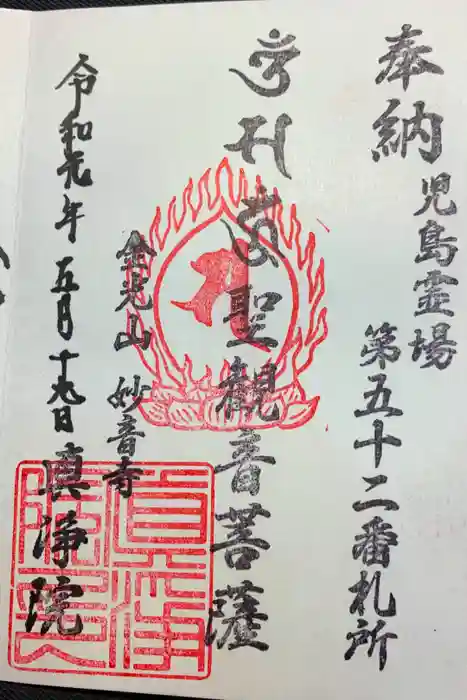 奉納
児島霊場
第五十二番札所
聖観音菩薩
金光山 妙音寺
令和元年五月十九日
真浄院